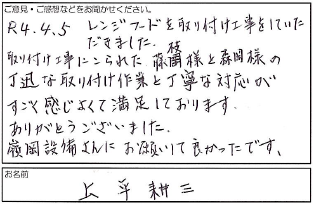 ご意見・ご感想などをお聞かせください。
R4.4.5 レンジフードを取り付け工事をしていた
だきました。
取り付け工事にこられた 藤岡様と森岡様の
丁寧な対応が
すごく感じよくて満足しております.
ありがとうございました.
嶺岡設備さんにお願いして良かったです。
お名前
上平耕三